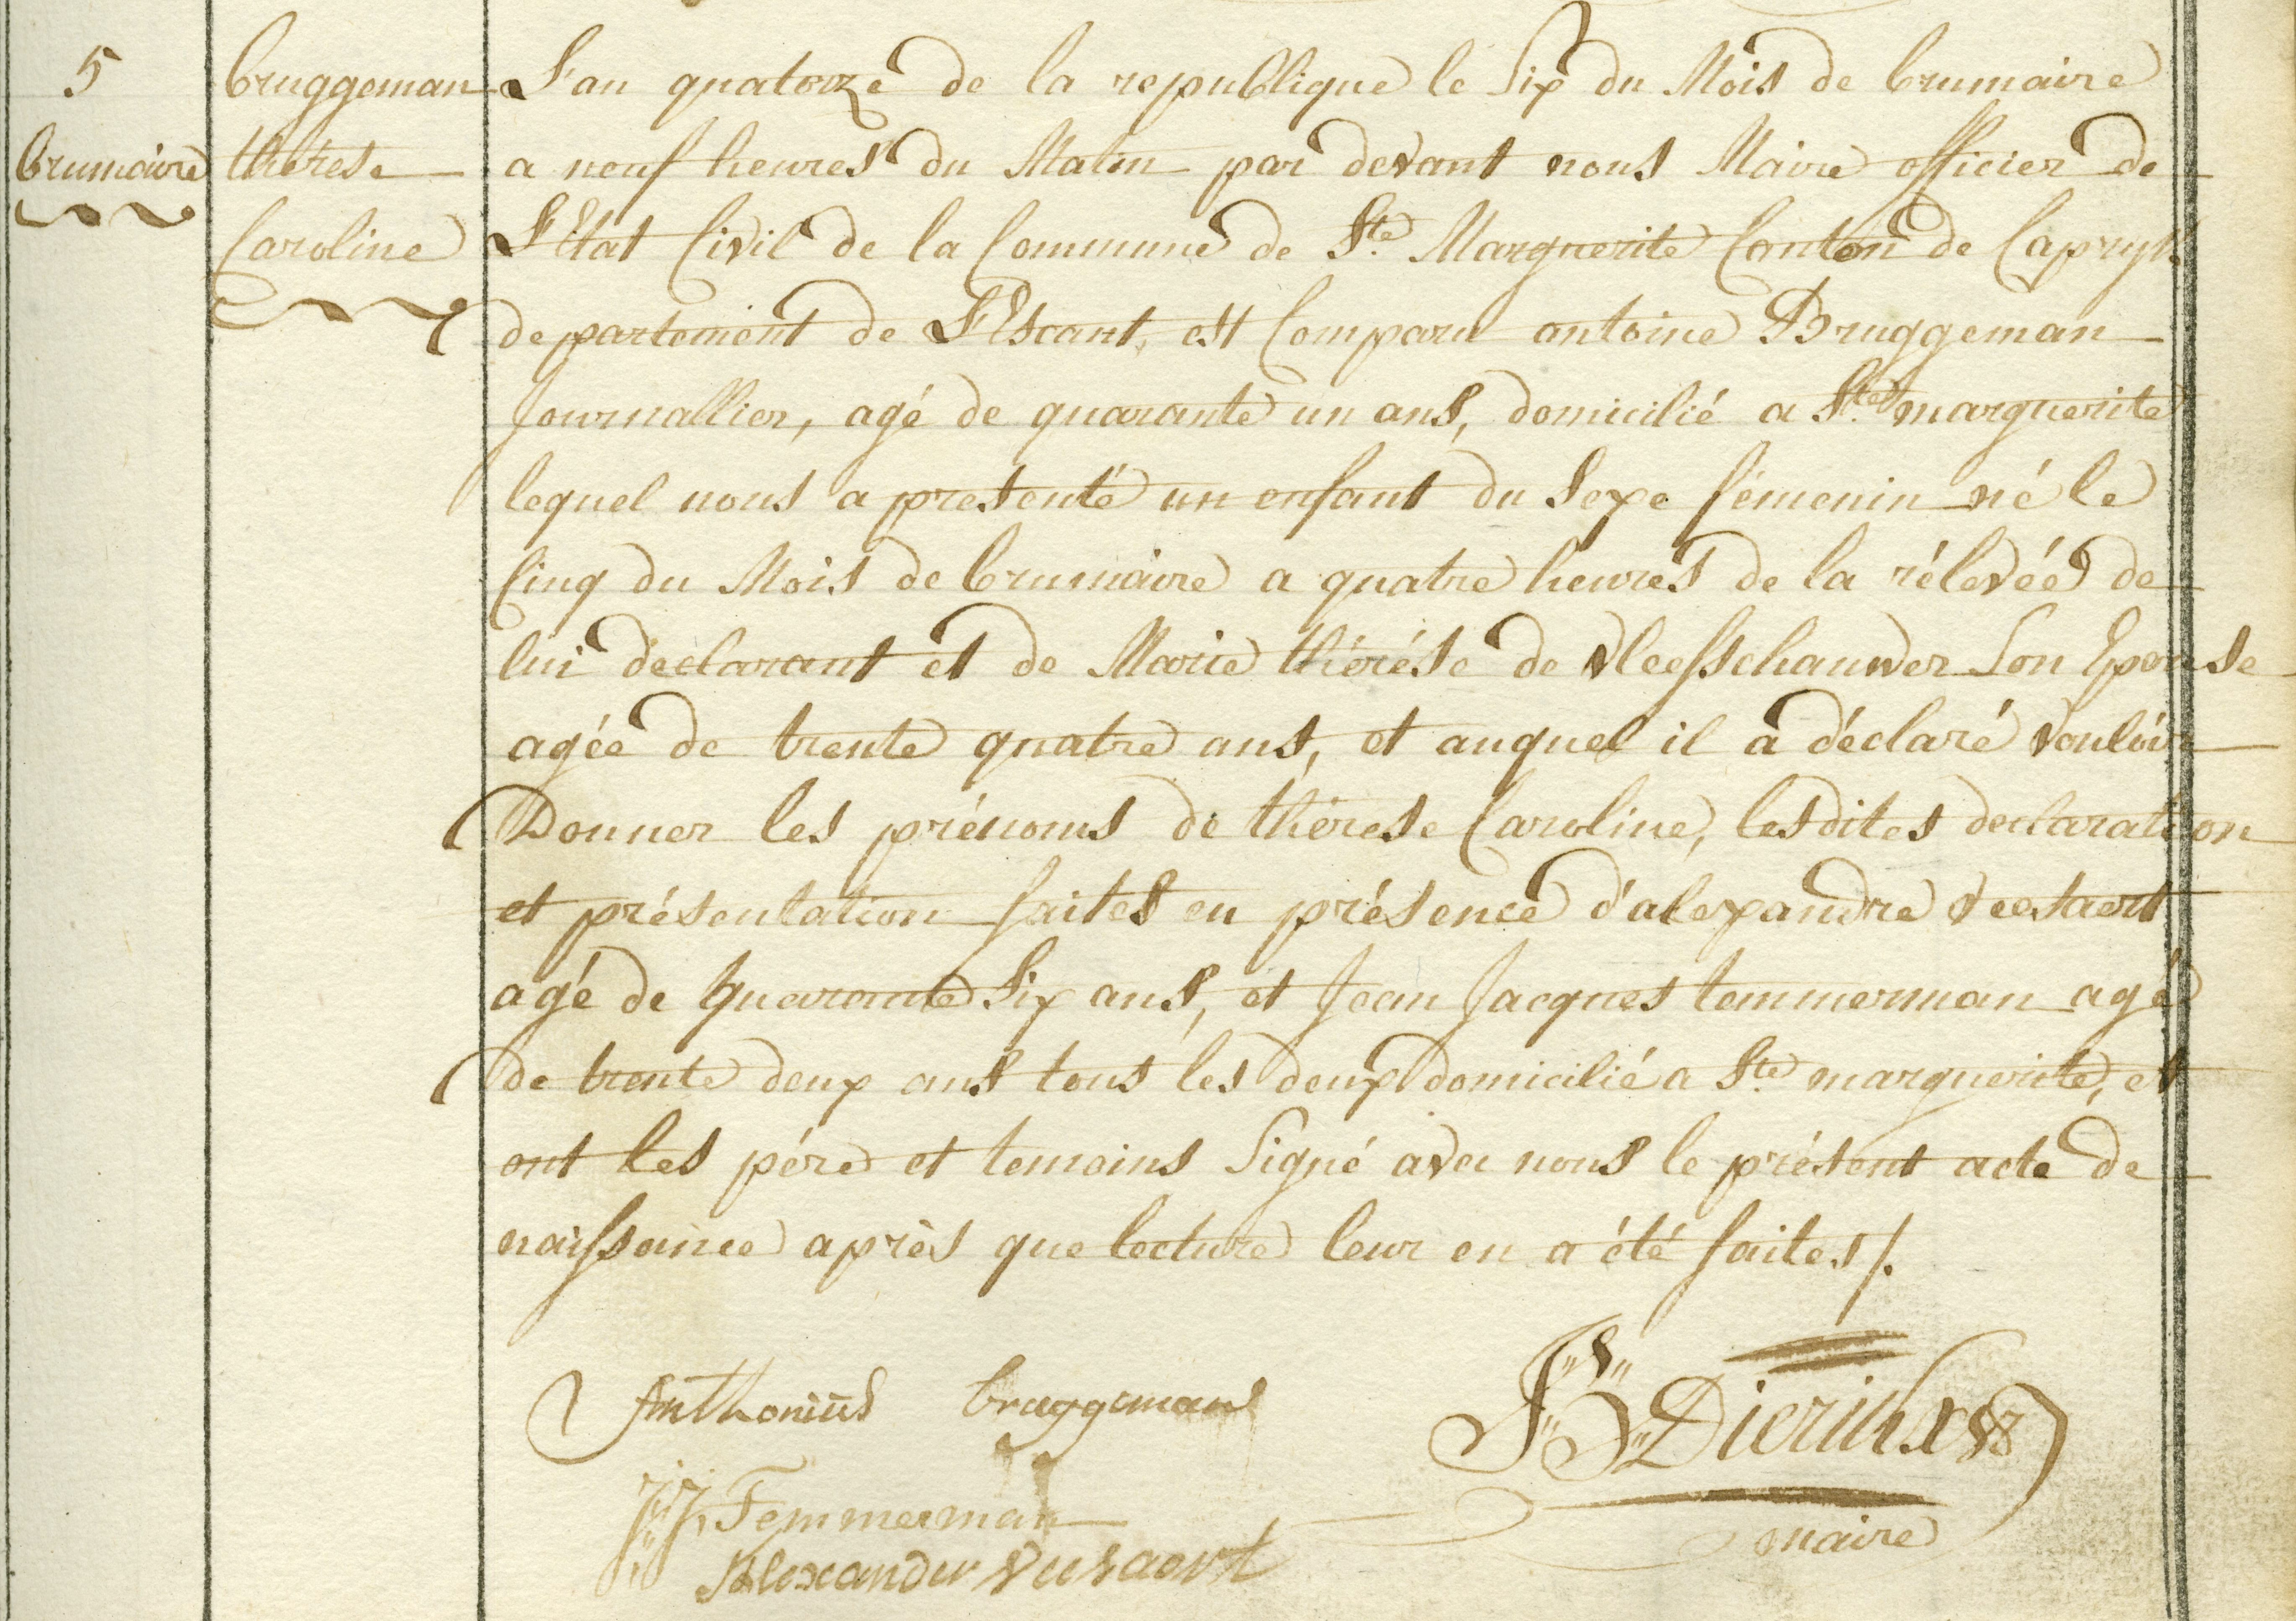 5
brumaire
bruggeman
thérese
Caroline
L'an quatorze de la republique le Six du Mois de brumaire
a neuf heures du Matin par devant nous Maire officier de
L'Etat Civil de la Commune de Ste Marguerite Canton de Capryk
departement de L'Escaut, est Comparu antoine Bruggeman
Journallier, agé de quarante un ans, domicilié a Ste marguerite
lequel nous a presenté un enfant du Sexe fémenin né le
Cinq du Mois de brumaire a quatre heures de la rélevéé de
lui declarant et de Marie thérése de vleesschauwer Son Epouse
agée de trente quatre ans, et auquel il a déclaré vouloir
Donner les prénoms de thérese Caroline, lesdites declaration
et présentation faites en présence d'alexandre
agé de quarante Six ans, et Jean Jacques temmerman agé
de trente deux ans tous les deux domicilié a Ste marguerite, et
ont les pére et temoins Signé avec nous le présent acte de
naissance après que lecture leur en a été faites /.
Anthoniüs bruggeman
JB Dierickx
JJ Temmerman
maire
Alexander